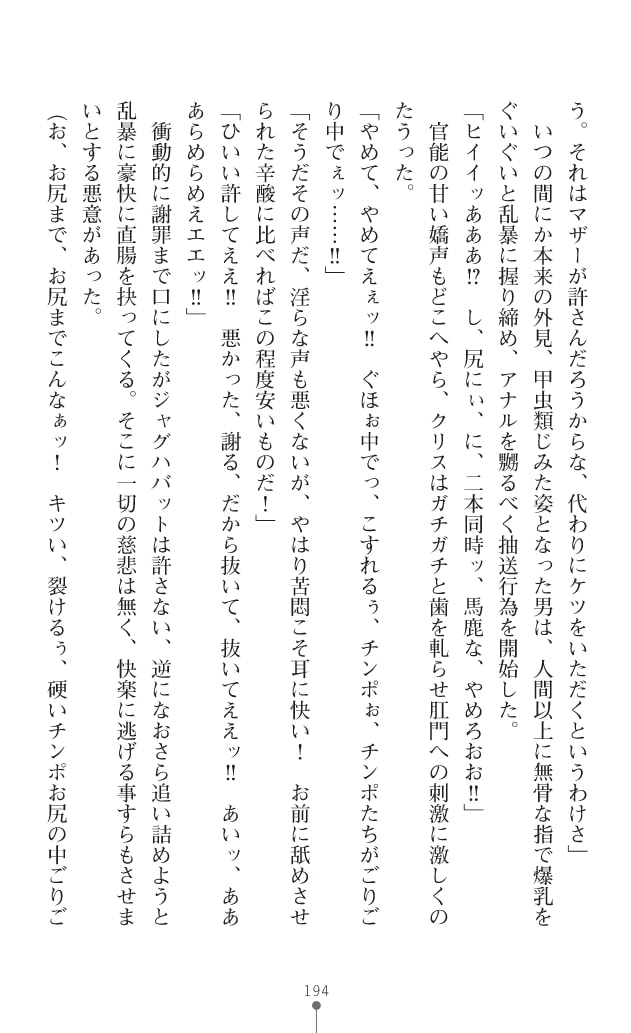 う。それはマザーが許さんだろうからな、代わりにケツをいただくというわけさ」
いつの間にか本来の外見、甲虫類じみた姿となった男は、人間以上に無骨な指で爆乳を
ぐいぐいと乱暴に握り締め、アナルを嬲るべく抽送行為を開始した。
「ヒイイッあああ!?　し、尻にぃ、に、二本同時ッ、馬鹿な、やめろおお!!」
官能の甘い嬌声もどこへやら、クリスはガチガチと歯を軋らせ肛門への刺激に激しくの
たうった。
「やめて、やめてえぇッ!!　ぐほぉ中でっ、こすれるぅ、チンポぉ、チンポたちがごりご
り中でぇッ……!!」
「そうだその声だ、淫らな声も悪くないが、やはり苦悶こそ耳に快い！　お前に舐めさせ
られた辛酸に比べればこの程度安いものだ！」
「ひいい許してええ!!　悪かった、謝る、だから抜いて、抜いてええッ!!　あいッ、ああ
あらめらめえエエッ!!」
衝動的に謝罪まで口にしたがジャグハバットは許さない、逆になおさら追い詰めようと
乱暴に豪快に直腸を抉ってくる。そこに一切の慈悲は無く、快楽に逃げる事すらもさせま
いとする悪意があった。
（お、お尻まで、お尻までこんなぁッ！　キツい、裂けるぅ、硬いチンポお尻の中ごりご
194